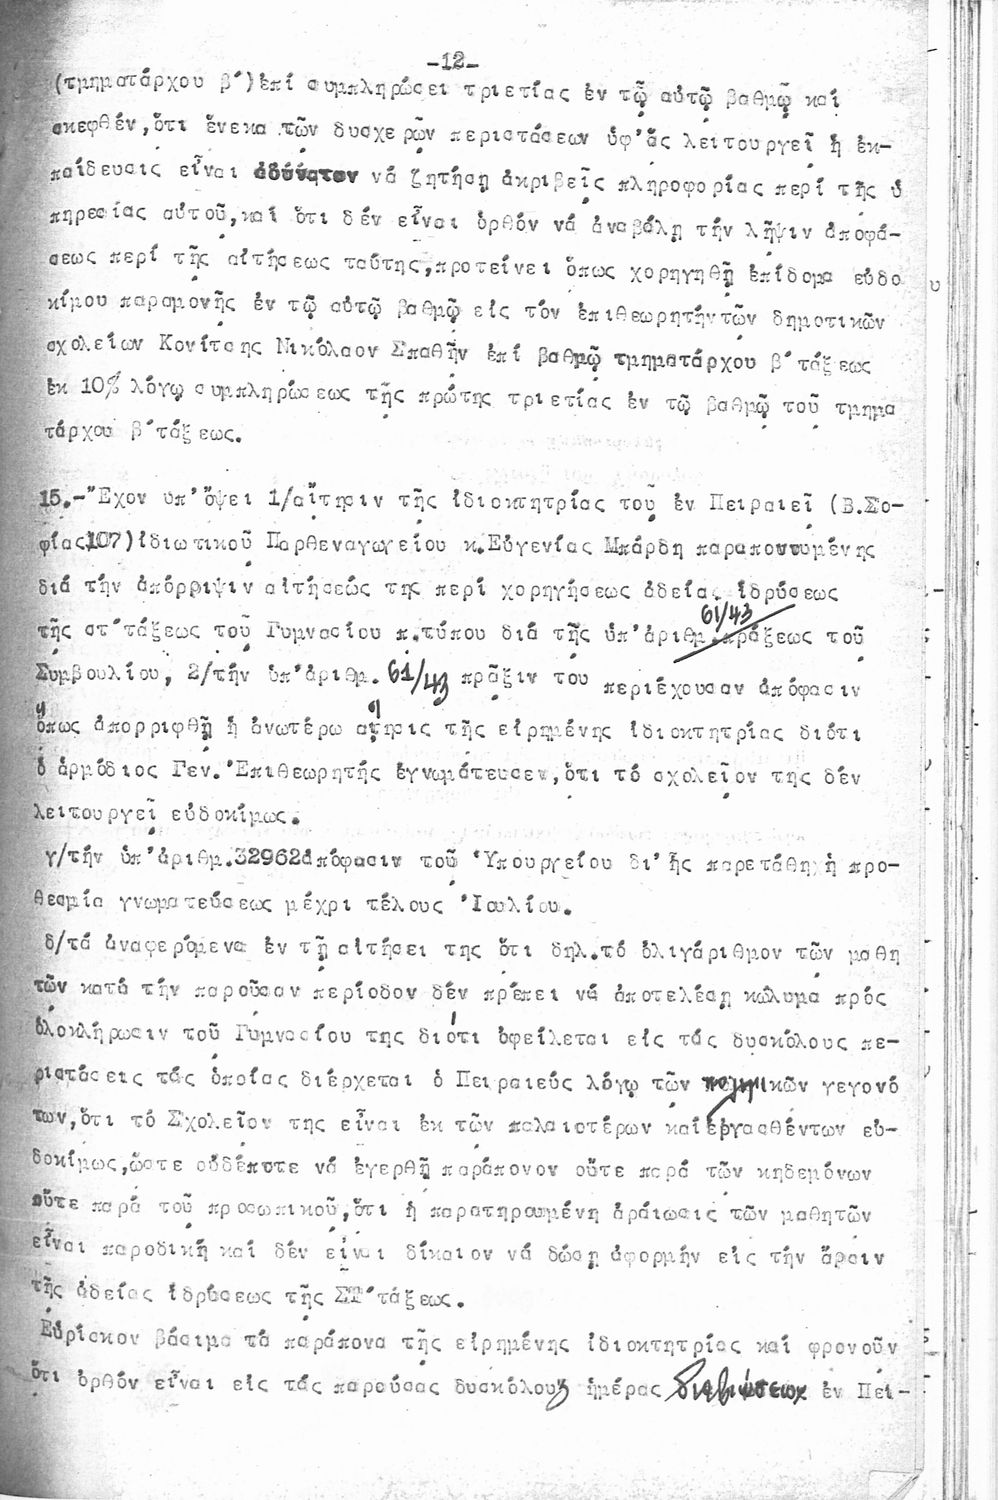 -12-
(τμηματάρχου β΄)ἐπί συμπληρώσει τριετίας ἐν τῷ αὐτῷ βαθμῷ καί
σκεφθέν,ὅτι ἕνεκα τῶν δυσχερῶν περιστάσεων ὑφ'ἅς λειτουργεῖ ἡ ἐκ-
παίδευσις εἶναι ἀδύνατον νά ζητήσῃ ἀκριβεῖς πληροφορίας περί τῆς ὑ
πηρεσίας αὐτοῦ,καί ὅτι δέν εἶναι ὀρθόν νά ἀναβάλῃ τήν λῆψιν ἀποφά-
σεως περί τῆς αἰτήσεως ταύτης,προτείνει ὅπως χορηγηθῇ ἐπίδομα εὐδο
κίμου παραμονῆς ἐν τῷ αὐτῷ βαθμῷ εἰς τόν ἐπιθεωρητήν τῶν δημοτικῶν
σχολείων Κονίτσης Νικόλαον Σπαθῆν ἐπί βαθμῷ τμηματάρχου β΄τάξεως
ἐκ 10% λόγῳ συμπληρώσεως τῆς πρώτης τριετίας ἐν τῷ βαθμῷ τοῦ τμημα
τάρχου β΄τάξεως.
15.-Ἔχον ὑπ'ὄψει 1/αἴτησιν τῆς ἰδιοκτητρίας τοῦ ἐν Πειραιεῖ (Β.Σο-
φίας107)ἰδιωτικοῦ Παρθεναγωγείου κ.Εὐγενίας Μπάρδη παραπονουμένης
διά τήν ἀπόρριψιν αἰτήσεώς της περί χορηγήσεως ἀδείας ἱδρύσεως
61/43
τῆς στ΄τάξεως τοῦ Γυμνασίου π.τύπου διά τῆς ὑπ'ἀριθμ.πράξεως τοῦ
Συμβουλίου, 2/τήν ὑπ'ἀριθμ. 61/43 πρᾶξιν του περιέχουσαν ἀπόφασιν
ὅπως ἀπορριφθῇ ἡ ἀνωτέρω αἴτησις τῆς εἰρημένης ἰδιοκτητρίας διότι
ὁ ἁρμόδιος Γεν.Ἐπιθεωρητής ἐγνωμάτευσεν,ὅτι τό σχολεῖον της δέν
λειτουργεῖ εὐδοκίμως.
γ/τήν ὑπ'ἀριθμ.32962ἀπόφασιν τοῦ Ὑπουργείου δι'ἧς παρετάθη ἡ προ-
θεσμία γνωματεύσεως μέχρι τέλους Ἰουλίου.
δ/τά ἀναφερόμενα ἐν τῇ αἰτήσει της ὅτι δηλ.τό ὀλιγάριθμον τῶν μαθη
τῶν κατά τήν παροῦσαν περίοδον δέν πρέπει νά ἀποτελέσῃ κώλυμα πρός
ὁλοκλήρωσιν τοῦ Γυμνασίου της διότι ὀφείλεται εἰς τάς δυσκόλους πε-
ριστάσεις τάς ὁποίας διέρχεται ὁ Πειραιεύς λόγῳ τῶν πολεμικῶν γεγονό
των,ὅτι τό Σχολεῖον της εἶναι ἐκ τῶν παλαιοτέρων καί ἐργασθέντων εὐ-
δοκίμως,ὥστε οὐδέποτε νά ἐγερθῇ παράπονον οὔτε παρά τῶν κηδεμόνων
οὔτε παρά τοῦ προσωπικοῦ,ὅτι ἡ παρατηρουμένη ἀραίωσις τῶν μαθητῶν
εἶναι παροδική καί δέν εἶναι δίκαιον νά δώσῃ ἀφορμήν εἰς τήν ἄρσιν
τῆς ἀδείας ἱδρύσεως τῆς ΣΤ΄τάξεως.
Εὑρίσκον βάσιμα τά παράπονα τῆς εἰρημένης ἰδιοκτητρίας καί φρονοῦν
ὅτι ὀρθόν εἶναι εἰς τάς παρούσας δυσκόλους ἡμέρας διαβιώσεως ἐν Πει-